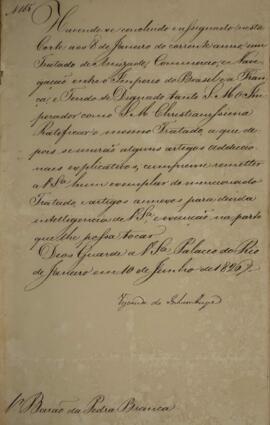 N.186
Havendo se concluido e assignado nesta
Corte aos 8 de Janeiro do corrente anno, um
Tratado de Amizade, Commercio, e Nave-
gação entre o Imperio do Brasil e a Fran-
ça, e Tendo se Dignado tanto S. M. o Im-
perador como S. M. Christianissima
Ratificar o mesmo Tratado, a que de-
pois se unirão alguns artigos addicio-
naes explicativos, cumpre-me remetter
a V. Sa. hum exemplar do mencionado
Tratado e artigos annexos para devida
intelligencia de V. Sa. e execução na parte
que lhe possa tocar.
Deos Guarde a V. Sa. Palacio do Rio
de Janeiro em 10 de Junho de 1826
Visconde de Inhambupe
Barão da Pedra Branca